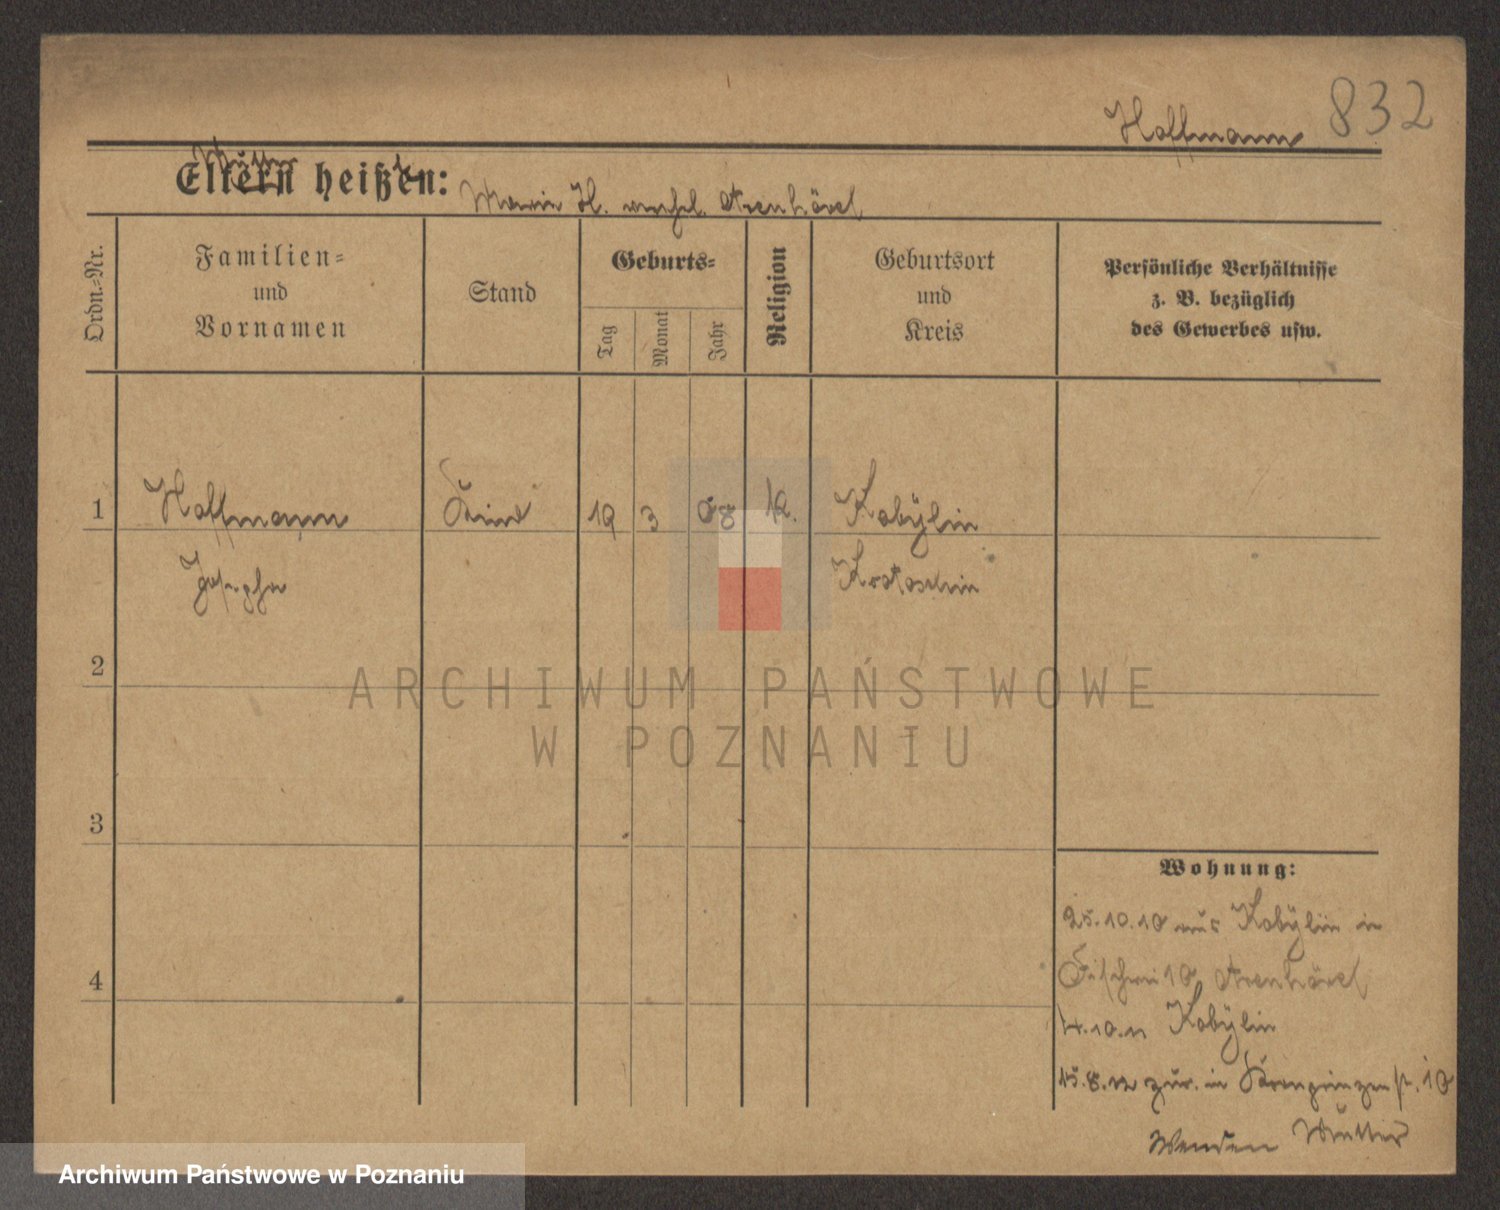 Hoffmann 832
Mutter
Eltern heißt:
Marie H. verehl. Arenhövel
Ordn.-Nr.
Familien-
und
Vornamen
Stand
Geburts-
Tag
Monat
Jahr
Religion
Geburtsort
und
Kreis
Persönliche Verhältnisse
z. B. bezüglich
des Gewerbes usw.
1 Hoffmann Kind 19 3 08 k. Kobylin
Josepha Krotoschin
2
3
4
Wohnung:
25.10.10 aus Kobylin in
Fischerei 10, Arenhövel
4.10.11 Kobylin
15.8.12 zur. in Kronprinzenstr. 10
Mutter
ARCHIWUM PAŃSTWOWE
W POZNANIU
Archiwum Państwowe w Poznaniu